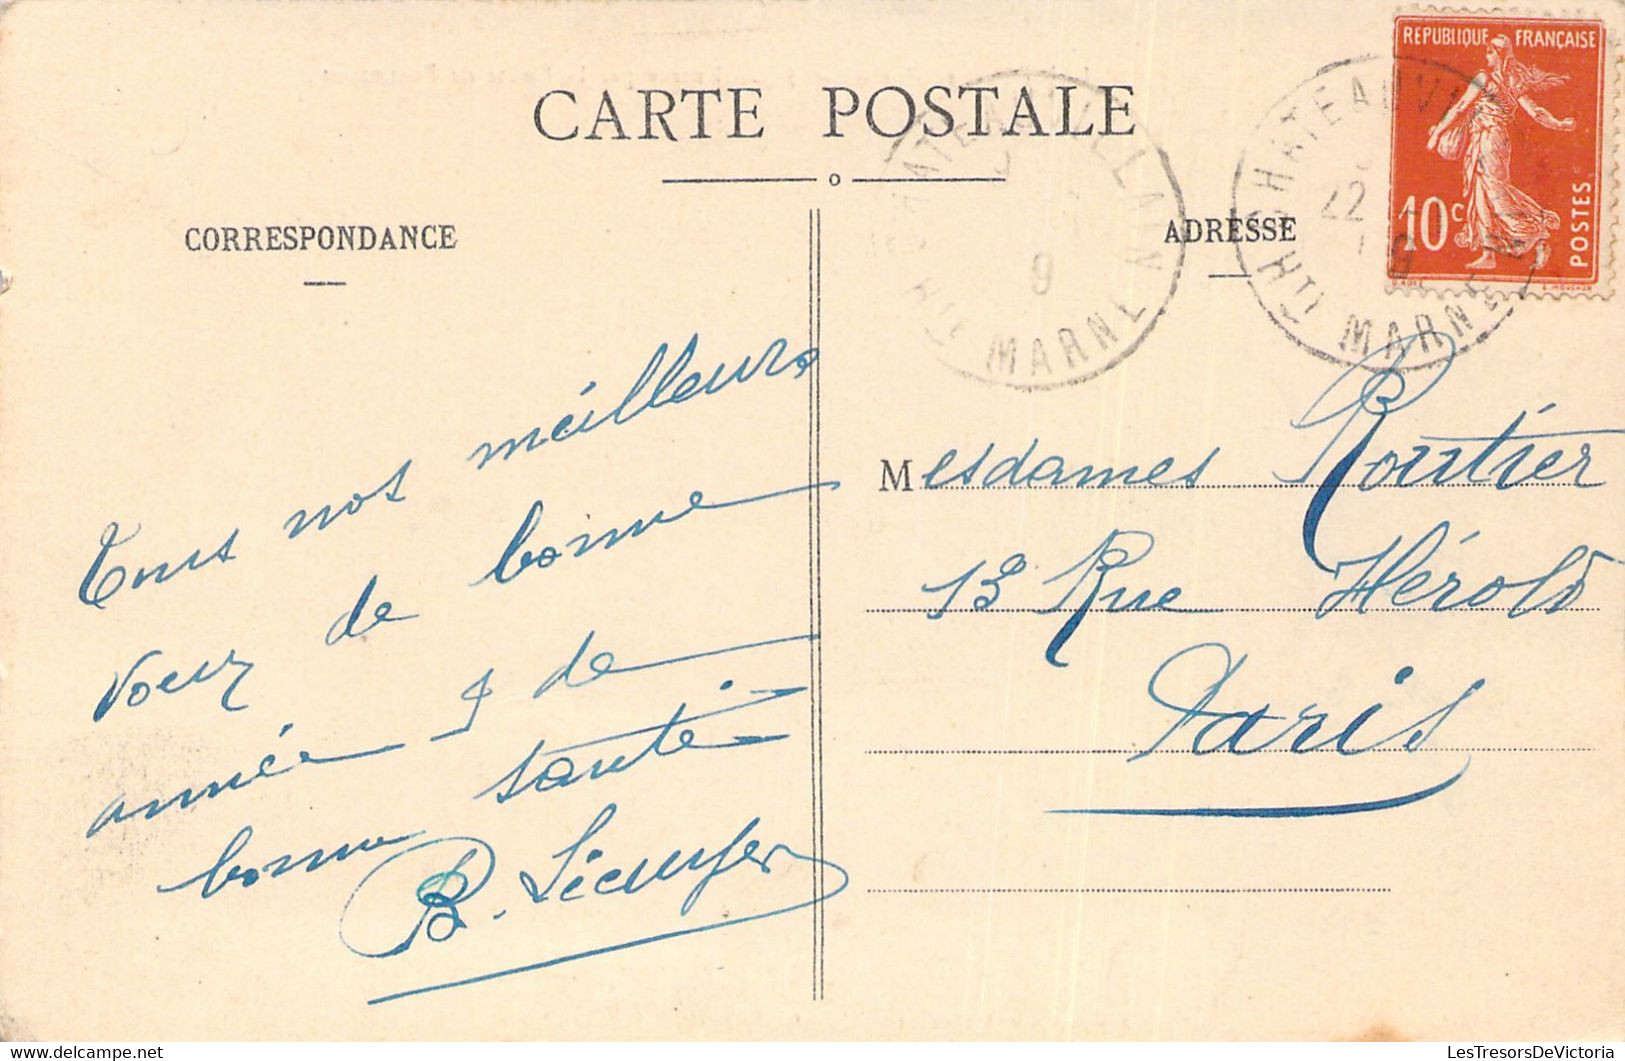 CARTE POSTALE
CORRESPONDANCE
Tous nos meilleurs
voeux de bonne
année & de
bonne santé
B.
ADRESSE
REPUBLIQUE FRANÇAISE
10c
POSTES
CHATEAUVILLAIN
9
HTE MARNE
CHATEAUV
22
9
HTE MARNE
Mesdames Routier
13 Rue Hérold
Paris
LesTresorsDeVictoria.com